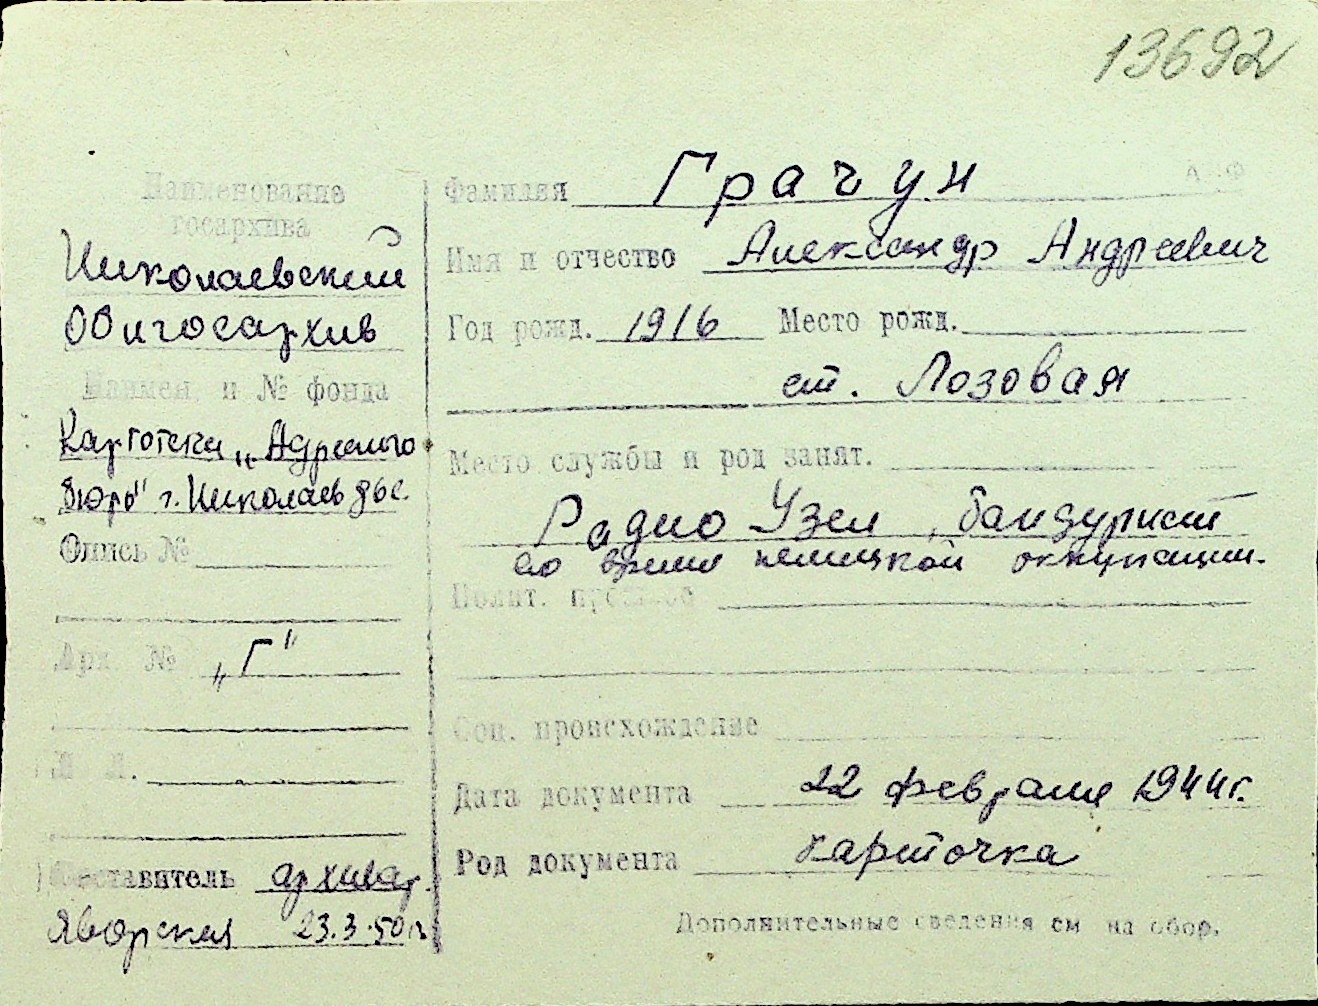 13692
Наименование
госархива
Николаевский
Облгосархив
Наимен. и № фонда
Картотека „Адресного
Бюро" г. Николаев
Опись №
Арх. № „Г"
Составитель архивар.
Яворская 23.3.50 г.
Фамилия Грачун
Имя и отчество Александр Андреевич
Год рожд. 1916 Место рожд.
ст. Лозовая
Место службы и род занят.
Радио Узел, бандурист
во время немецкой оккупации.
Полит. прошлое
Соц. происхождение
Дата документа 22 февраля 1944 г.
Род документа карточка
Дополнительные сведения см на обор.